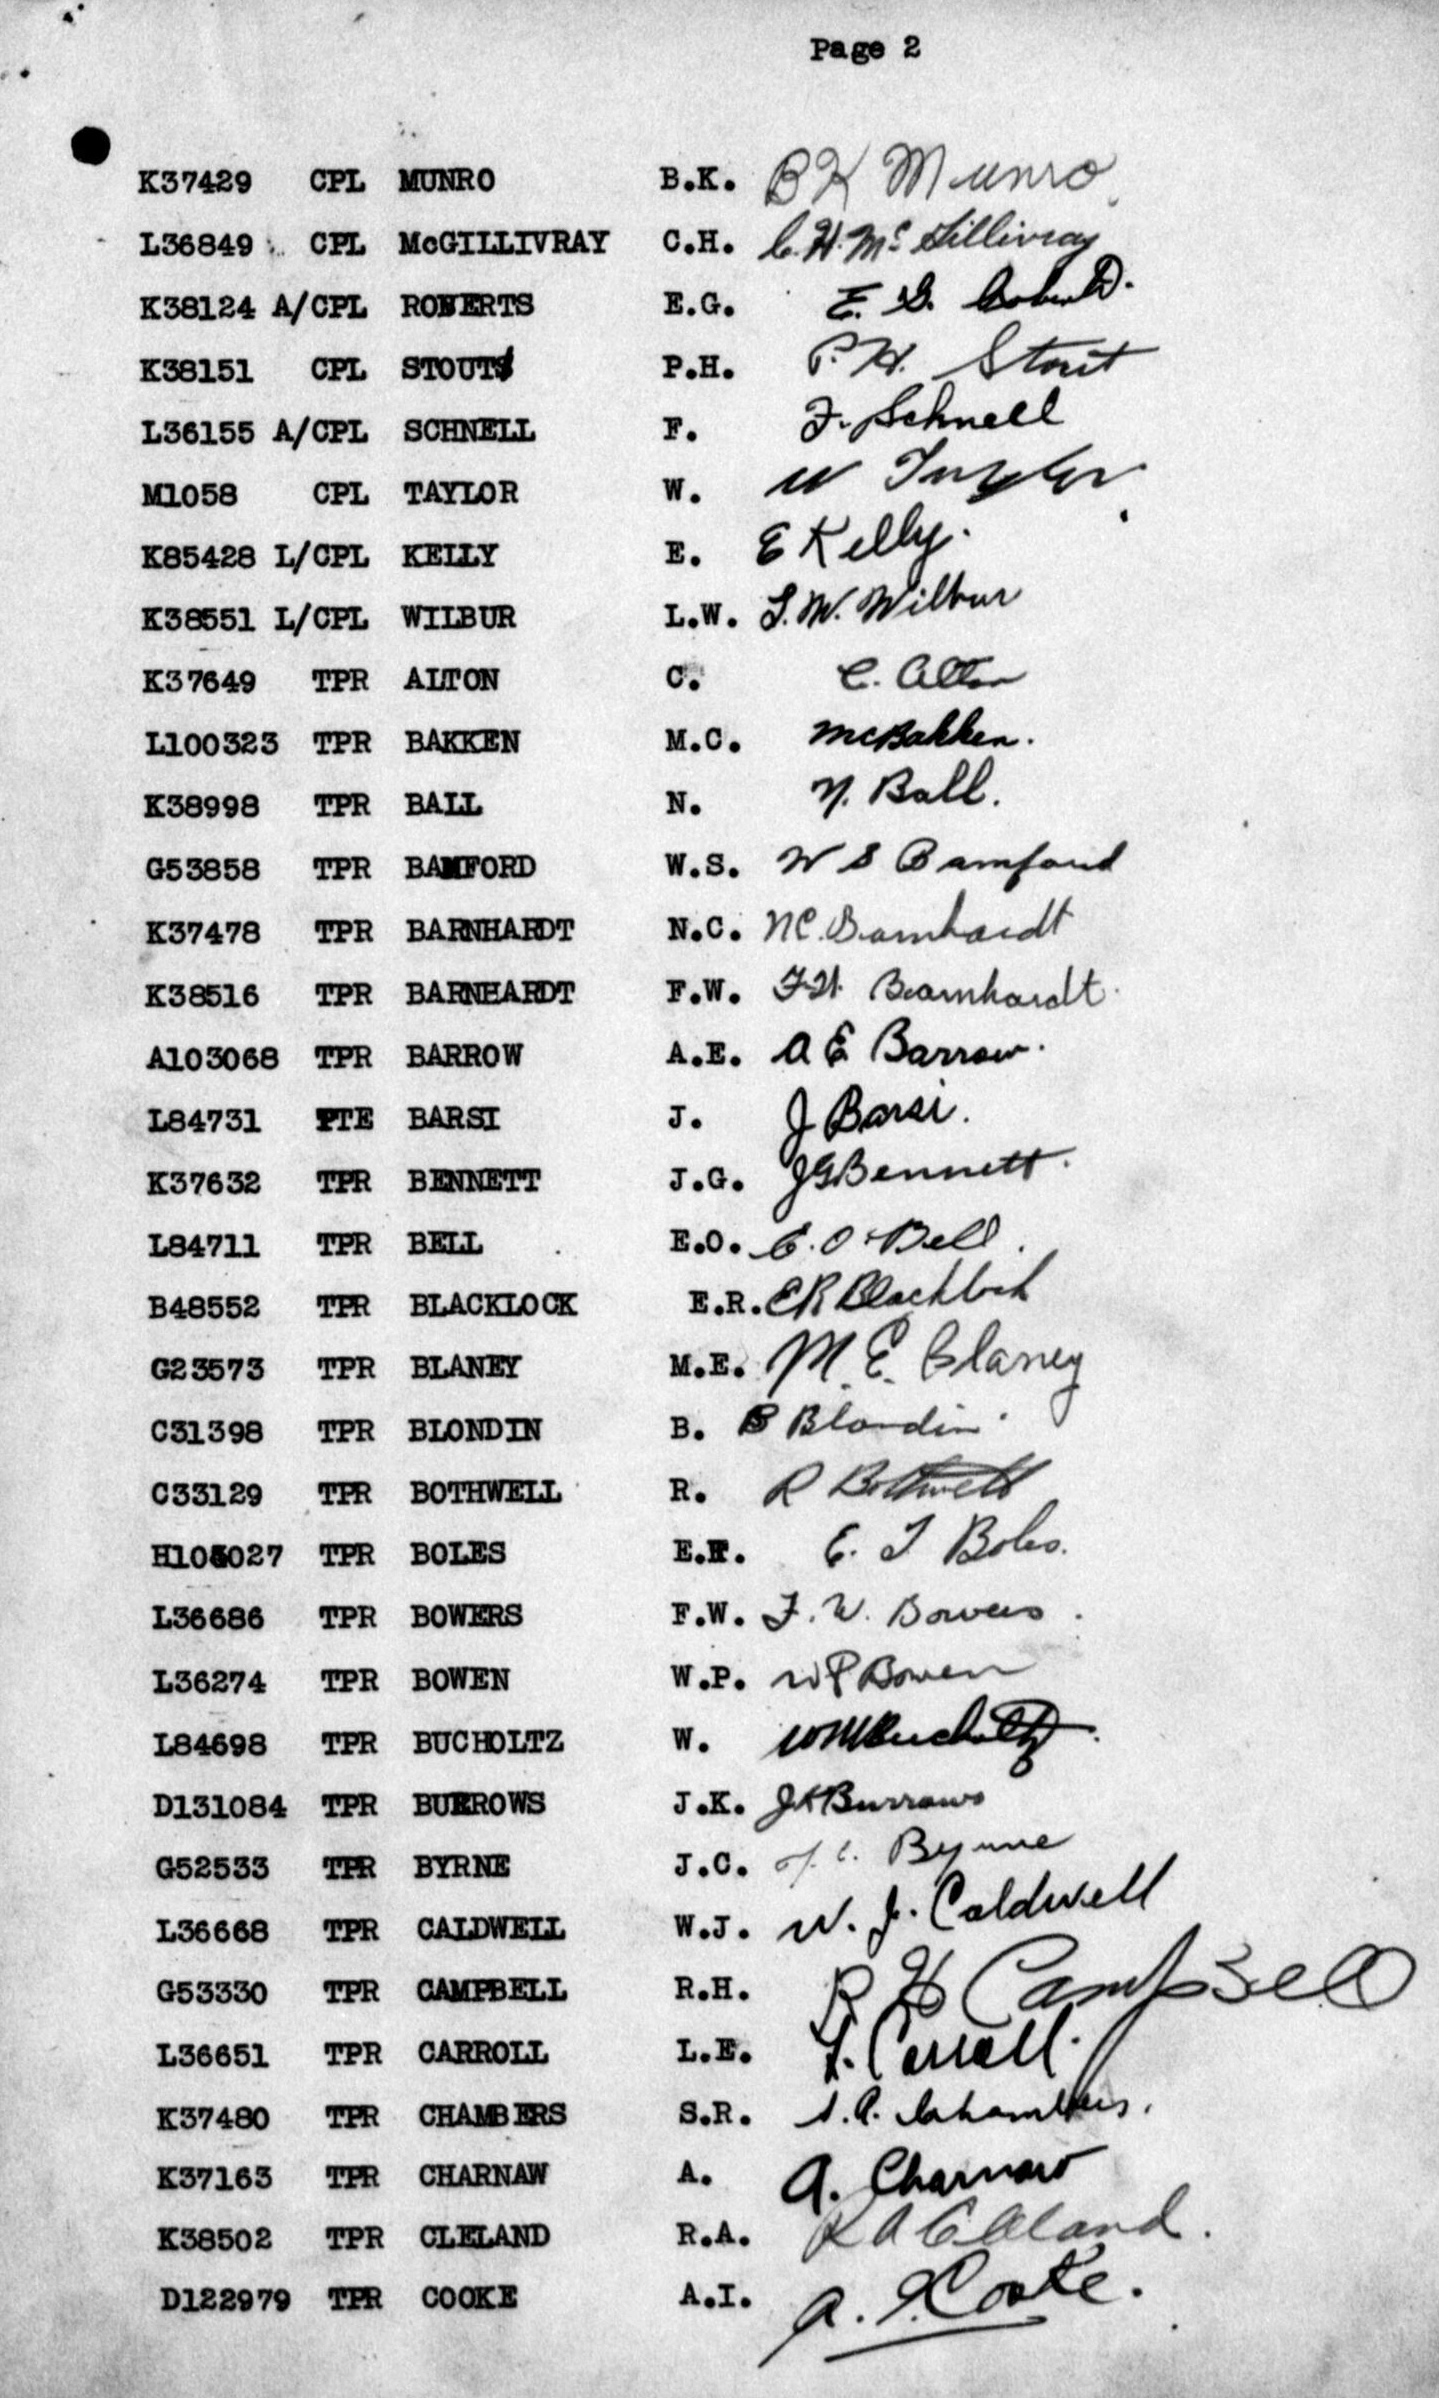 Page 2
K37429 CPL MUNRO B.K. B K Munro
L36849 CPL McGILLIVRAY C.H. C.H. Mc Gillivray
K38124 A/CPL ROBERTS E.G. E. G.
K38151 CPL STOUT P.H. P. H. Stout
L36155 A/CPL SCHNELL F. F. Schnell
M1058 CPL TAYLOR W. W Taylor
K85428 L/CPL KELLY E. E Kelly.
K38551 L/CPL WILBUR L.W. L.W. Wilbur
K37649 TPR ALTON C. C. Alton
L100323 TPR BAKKEN M.C. McBakken.
K38998 TPR BALL N. N. Ball.
G53858 TPR BAMFORD W.S. W S Bamford
K37478 TPR BARNHARDT N.C. NC. Barnhardt
K38516 TPR BARNHARDT F.W. F.W. Barnhardt.
A103068 TPR BARROW A.E. A E Barrow.
L84731 PTE BARSI J. J Barsi.
K37632 TPR BENNETT J.G. JGBennett.
L84711 TPR BELL E.O. E.O. Bell.
B48552 TPR BLACKLOCK E.R. ER Blacklock
G23573 TPR BLANEY M.E. M. E. Blaney
C31398 TPR BLONDIN B. B Blondin.
C33129 TPR BOTHWELL R. R Bothwell
TPR BOLES E. T Boles.
L36686 TPR BOWERS F.W. F. W. Bowers.
L36274 TPR BOWEN W.P. WP Bowen
L84698 TPR BUCHOLTZ W. WmBucholtz.
D131084 TPR BURROWS J.K. JKBurrows
G52533 TPR BYRNE J.C. J. C. Byrne
L36668 TPR CALDWELL W.J. W. J. Caldwell
G53330 TPR CAMPBELL R.H. R H Campbell
L36651 TPR CARROLL L.E. L. Carroll.
K37480 TPR CHAMBERS S.R. S. R. Chambers.
K37163 TPR CHARNAW A. A. Charnaw
K38502 TPR CLELAND R.A. R A Cleland.
D122979 TPR COOKE A.I. A. I. Cooke.